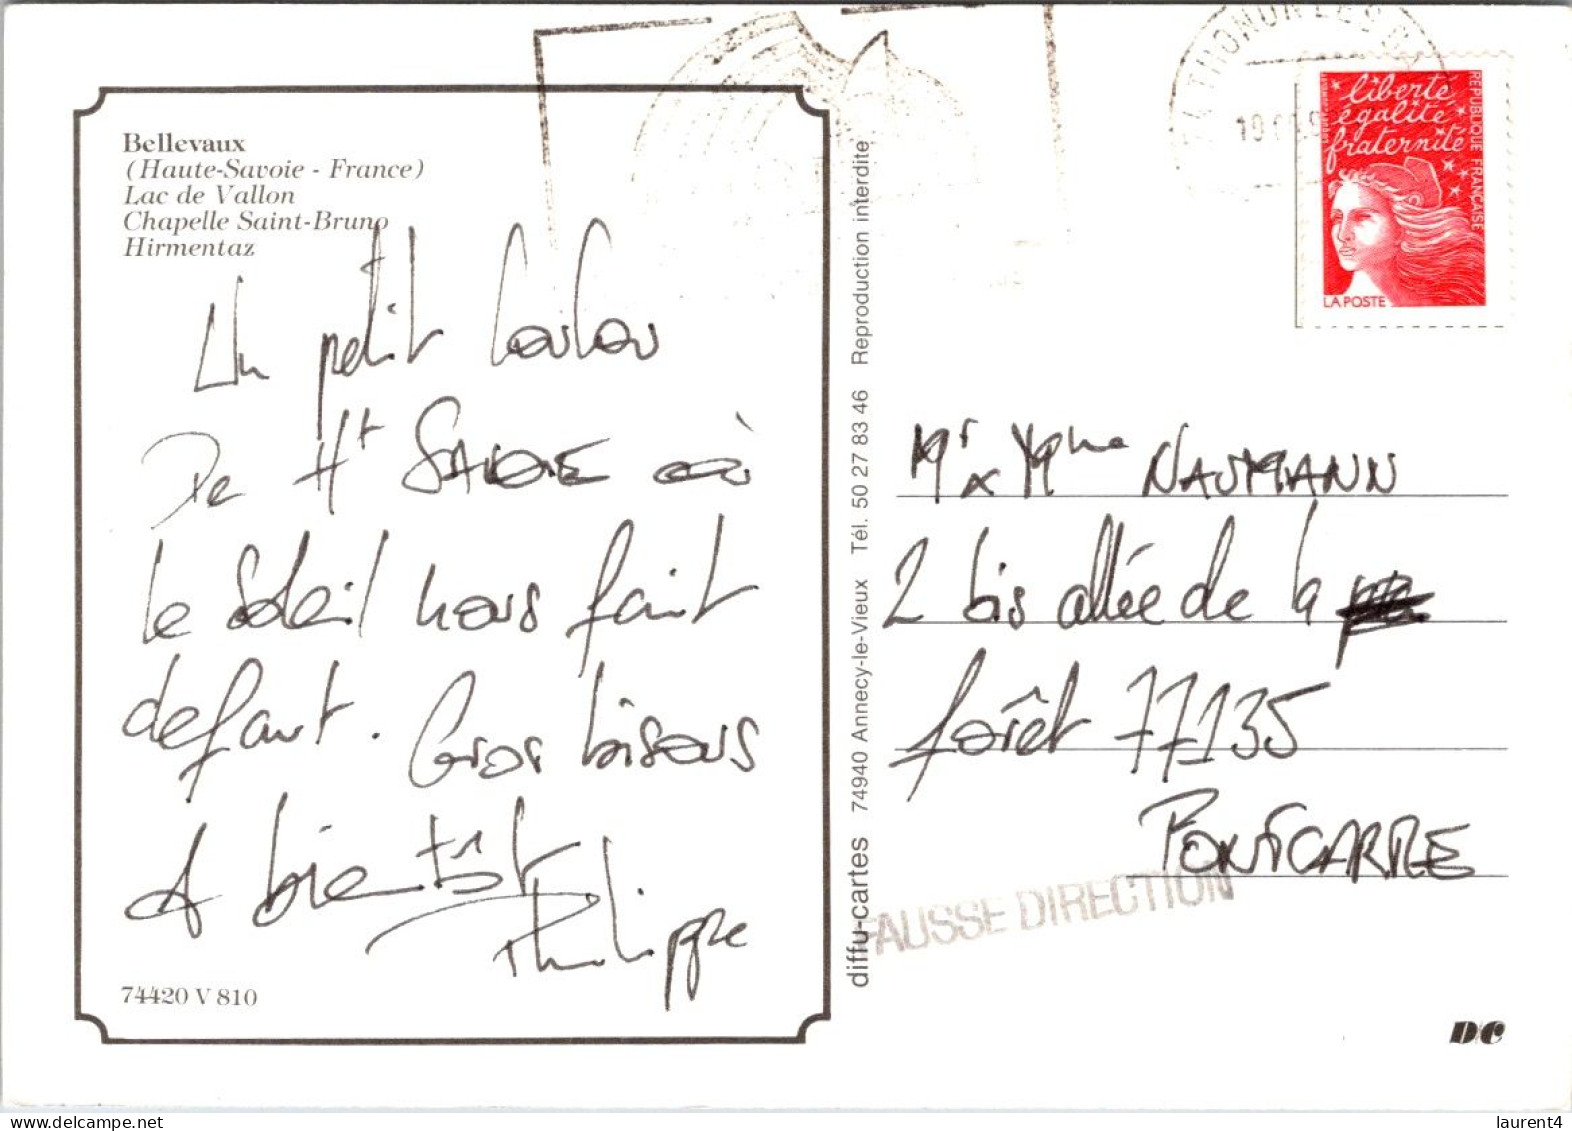 Bellevaux
(Haute-Savoie - France)
Lac de Vallon
Chapelle Saint-Bruno
Hirmentaz
Un petit coucou
De Ht SAVOIE où
le soleil nous fait
defaut. Gros bisous
A bientôt
Philippe
74420 V 810
diffu-cartes 74940 Annecy-le-Vieux Tél. 50 27 83 46 Reproduction interdite
THONON LES
liberté
égalité
fraternité
REPUBLIQUE FRANÇAISE
LA POSTE
Mr & Mme NAUMANN
2 bis allée de la
forêt 77135
PONTCARRE
FAUSSE DIRECTION
D/C
laurent4